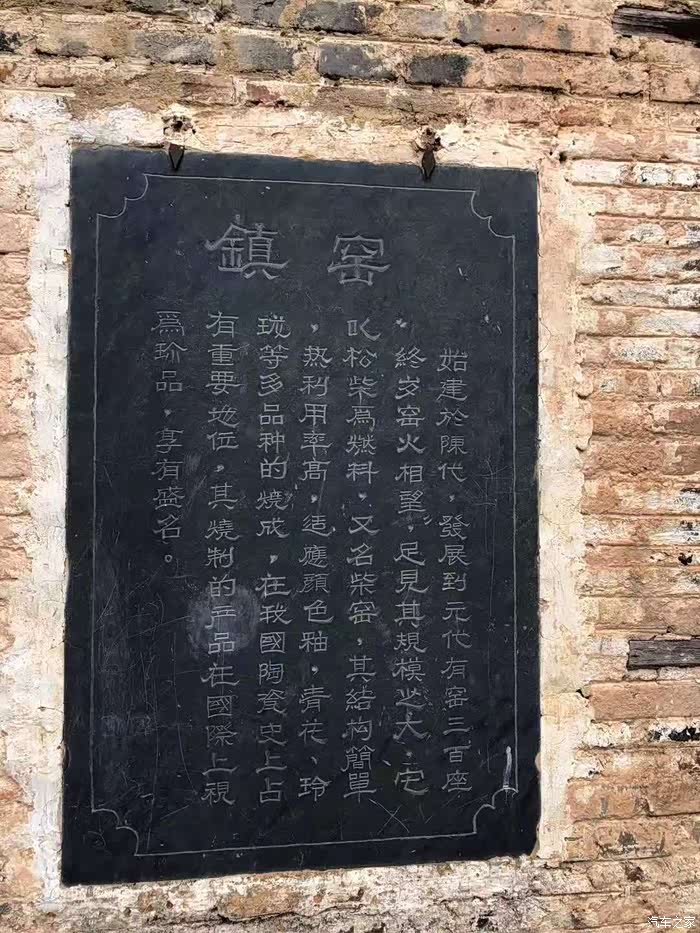 鎮窑
始建於陳代，發展到元代有窑三百座
，終岁窑火相望，足見其規模之大，它
以松柴爲燃料，又名柴窑，其結构簡單
，热利用率高，适應顔色釉，青花、玲
珑等多品种的燒成，在我國陶瓷史上占
有重要地位，其燒制的产品在國際上視
爲珍品，享有盛名。
汽车之家